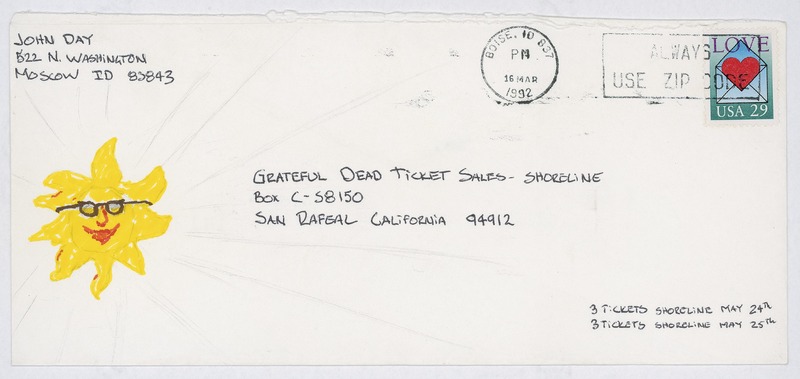 JOHN DAY
B22 N. WASHINGTON
MOSCOW ID 83843
BOISE, ID 837
PM
16 MAR
1992
ALWAYS
USE ZIP CODE
LOVE
USA 29
GRATEFUL DEAD TICKET SALES - SHORELINE
BOX C-S8150
SAN RAFEAL CALIFORNIA 94912
3 TICKETS SHORELINE MAY 24th
3 TICKETS SHORELINE MAY 25th